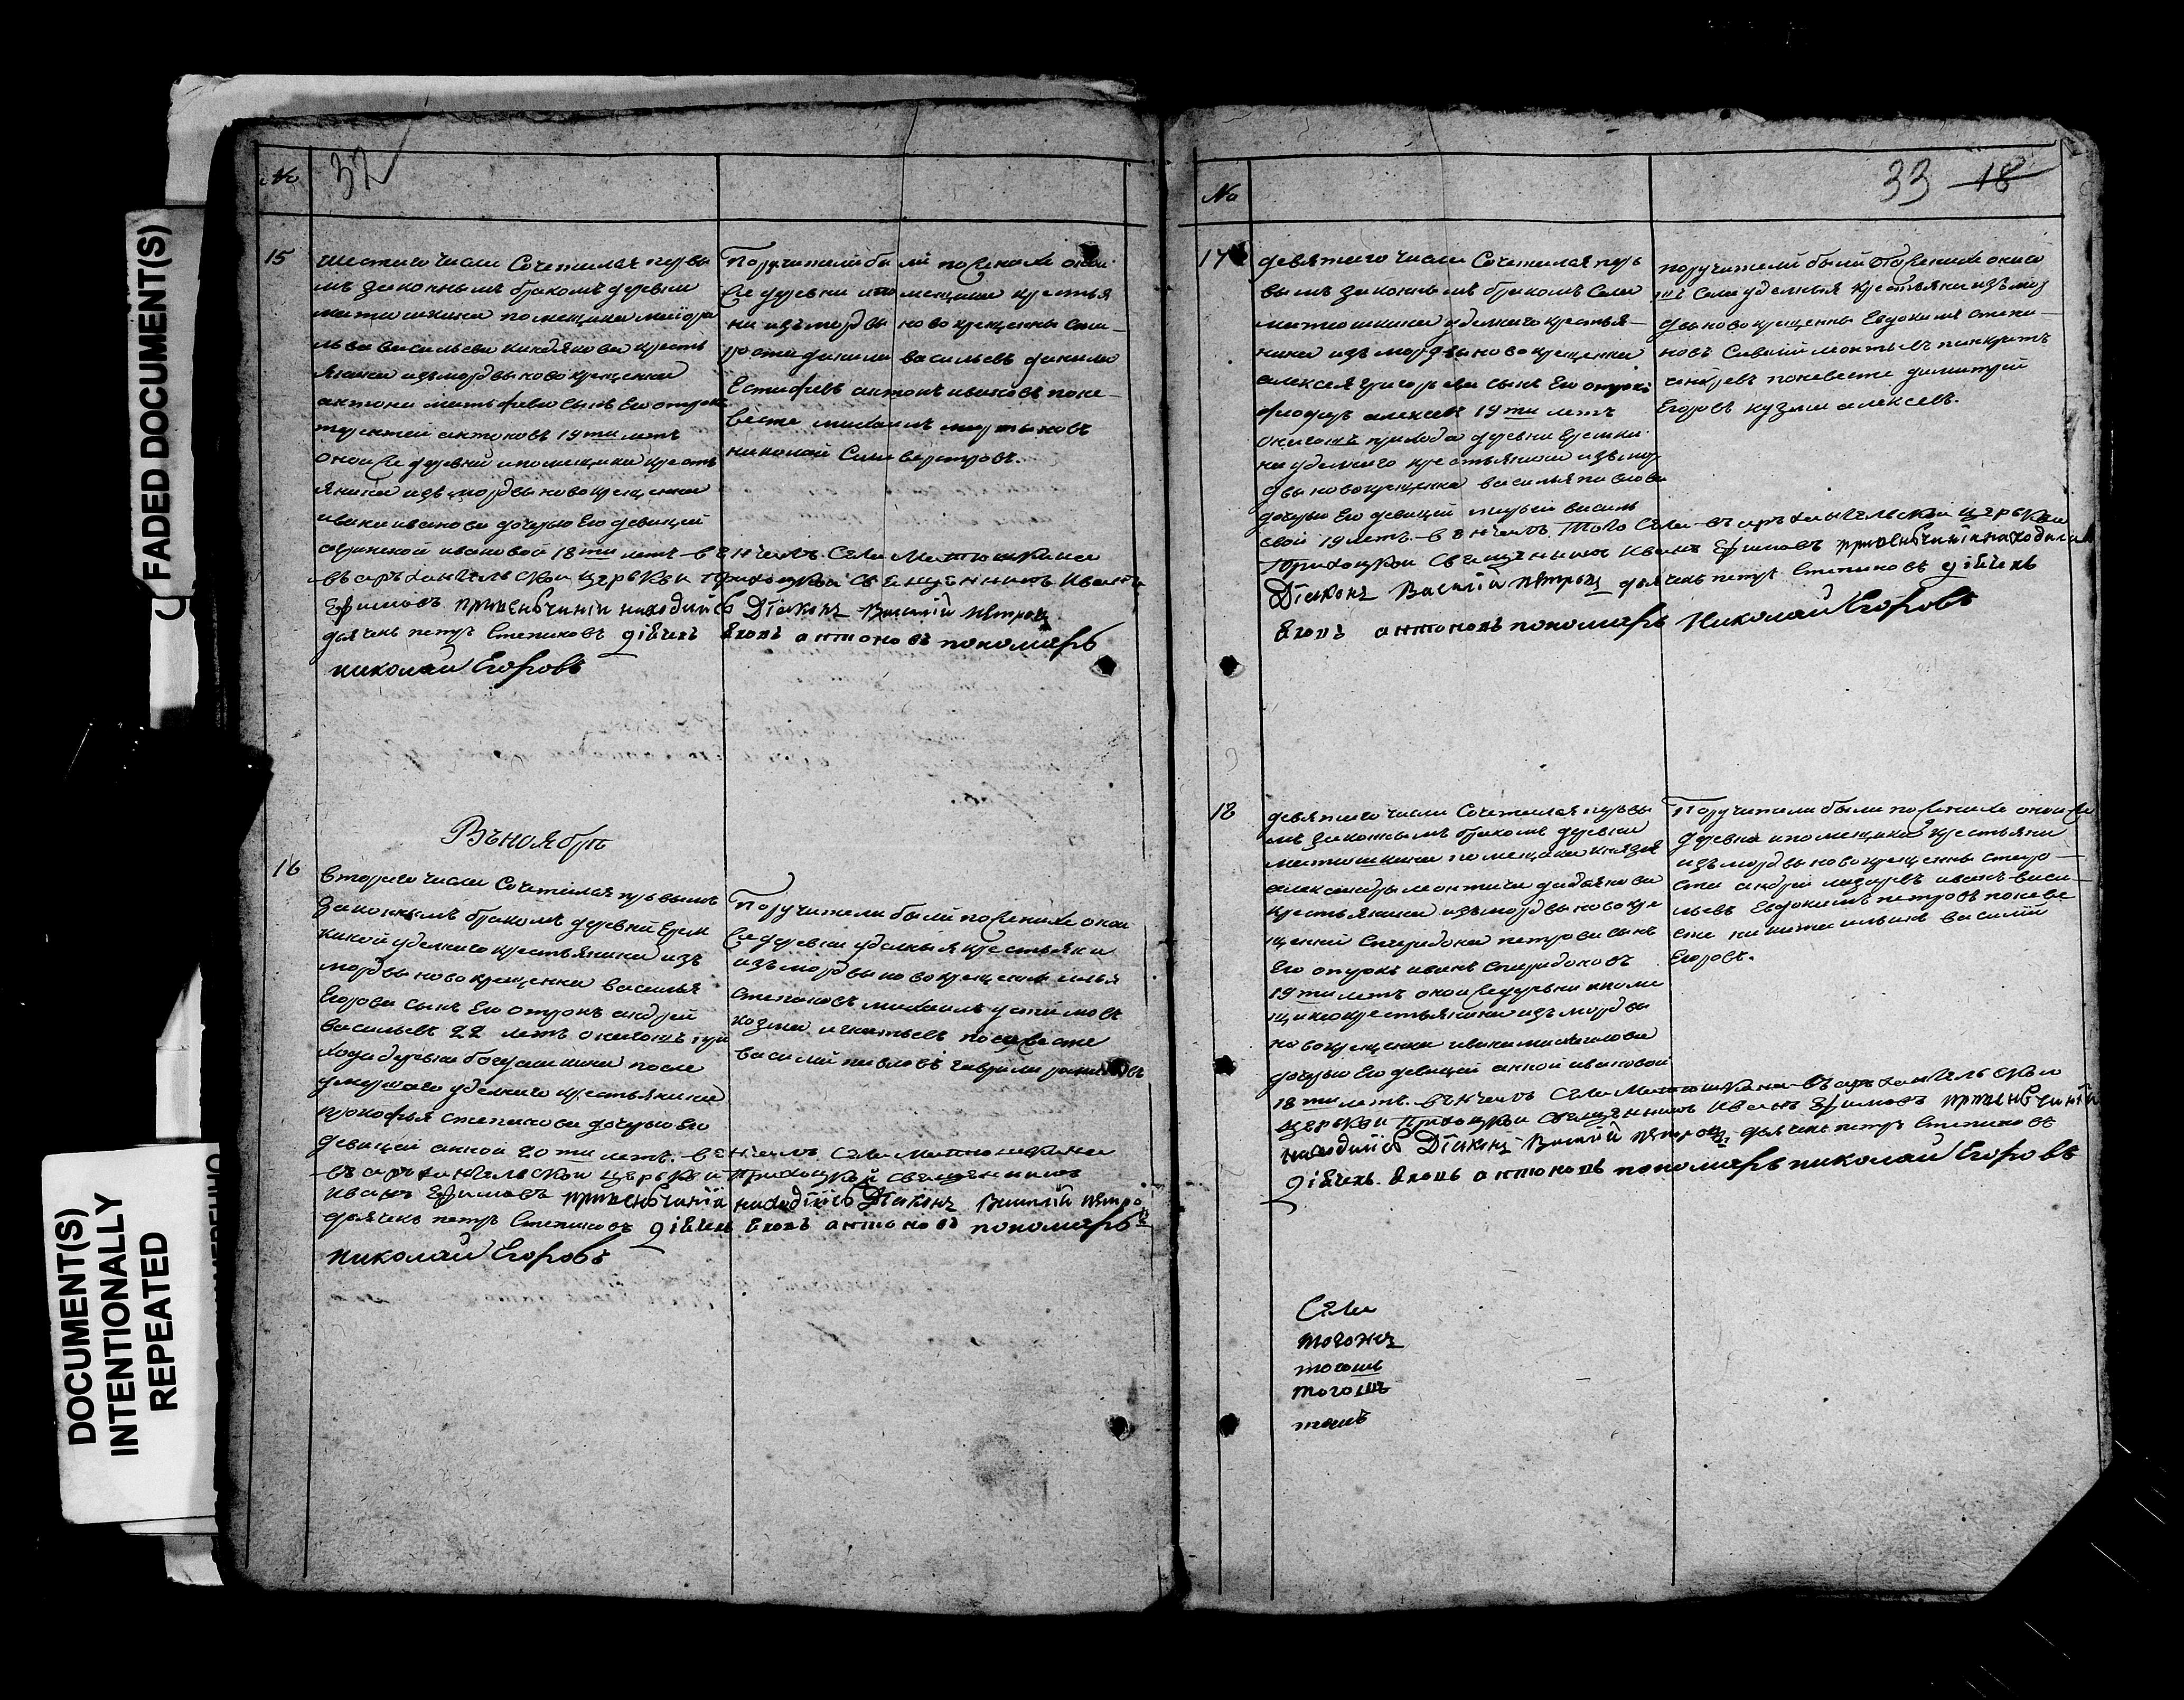 FADED DOCUMENT(S)
DOCUMENT(S)
INTENTIONALLY
REPEATED
№
32
15
шестаго числа Сочетался первы
мъ законнымъ бракомъ деревни
матюшкина помещика маіора
льва васильева кресть
янина изъ мордвы новокрещенна
антона сынъ Его отрокъ
антоновъ 19ти летъ
оной же деревни и помещика кресть
янина изъ мордвы новокрещенна
ивана иванова дочерью Его девицей
ивановой 18ти летъ венчалъ Села Матюшкина
въ архангельской церкви приходской священникъ Иванъ
Ефимовъ при венчаніи находился Діаконъ Василій Петровъ
дьячекъ петръ Степановъ діячекъ Яковъ антоновъ пономарь
николай Егоровъ
Поручители были по женихе оной
же деревни и помещика крестья
ни изъ мордвы новокрещенны ста-
роста данила васильевъ данила
Естифевъ антонъ ивановъ по не-
весте михаилъ мартыновъ
николай Селиверстровъ.
Въ ноябре
16
втораго числа Сочетался первымъ
законнымъ бракомъ деревни Ерем
киной уделнаго крестьянина изъ
мордвы новокрещенна василья
Егорова сынъ Его отрокъ андрей
васильевъ 22 летъ онагожъ при
хода деревни после
умершаго уделнаго крестьянина
прокофья степанова дочерью Его
девицей анной 20ти летъ венчалъ Села Матюшкина
въ архангельской церкви приходской священникъ
Иванъ Ефимовъ при венчаніи находился Діаконъ Василій Петровъ
дьячекъ петръ Степановъ діячекъ Яковъ антоновъ пономарь
николай Егоровъ
Поручители были по женихе оной
же деревни уделныя крестьяни
изъ мордвы новокрещенны илья
степановъ михаилъ устимовъ
козма игнатьевъ по невесте
василій павловъ гаврила
№
33 18
17
девятаго числа Сочетался пер
вымъ законнымъ бракомъ Села
матюшкина уделнаго крестья-
нина изъ мордвы новокрещенна
алексея григорьева сынъ Его отрокъ
феодоръ алексеевъ 19ти летъ
онагожъ прихода деревни Еремки
на уделнаго крестьянина изъ мор
двы новокрещенна василья павлова
дочерью Его девицей марьей василь
евой 19 летъ венчалъ Того Села въ архангельской церкви
Приходской Священникъ Иванъ Ефимовъ при венчаніи находился
Діаконъ Василій Петровъ дьячекъ петръ Степановъ діячекъ
Яковъ антоновъ пономарь Николай Егоровъ
поручители были по женихе онаго
жъ Села уделныя крестьяни изъ мор
двы новокрещенны Евдокимъ степа-
новъ Савелій панкратъ
по невесте димитрій
Егоровъ кузма алексеевъ.
18
девятаго числа Сочетался первы
мъ законнымъ бракомъ деревни
матюшкина помещика князя
александры леонтича
крестьянина изъ мордвы новокре
щенна спиридона петрова сынъ
Его отрокъ иванъ спиридоновъ
19ти летъ оной же деревни и поме
щика крестьянина изъ мордвы
новокрещенна ивана михаилова
дочерью Его девицей анной ивановой
18ти летъ венчалъ Села Матюшкина въ архангельской
церкви Приходской священникъ Иванъ Ефимовъ при венчаніи
находился Діаконъ Василій Петровъ дьячекъ петръ Степановъ
діячекъ Яковъ антоновъ пономарь николай Егоровъ
Поручители были по женихе оной же
деревни и помещика крестьяни
изъ мордвы новокрещенны старо-
ста андрей лазаревъ иванъ васи-
льевъ Евдокимъ петровъ по неве
сте никита ильинъ василій
Егоровъ.
Села
тогожъ
тогожъ
тогожъ